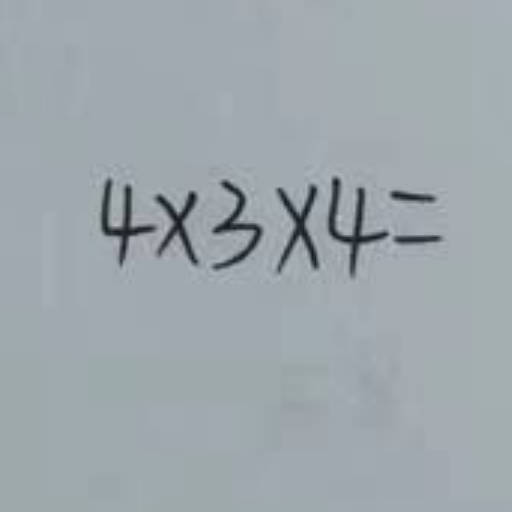 4×3×4=